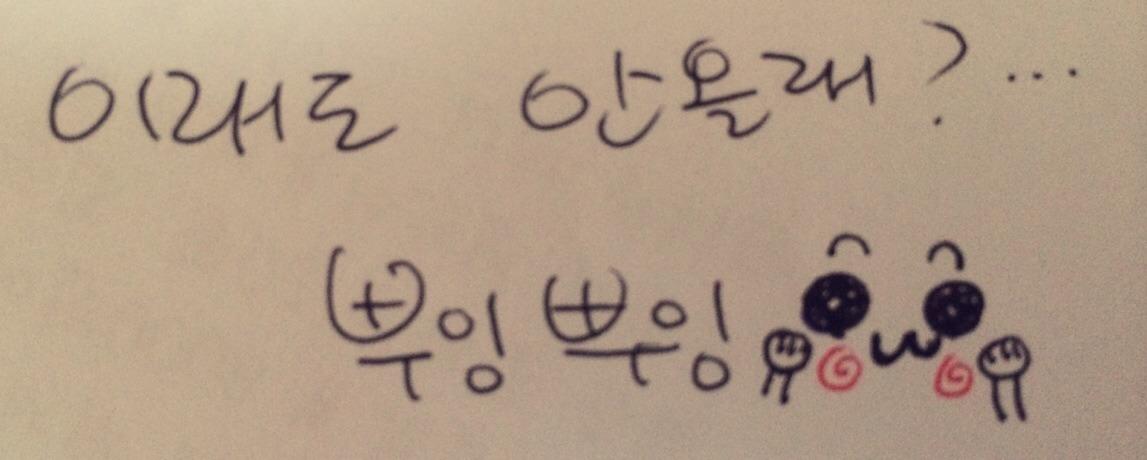 이래도 안올래?...
뿌잉 뿌잉